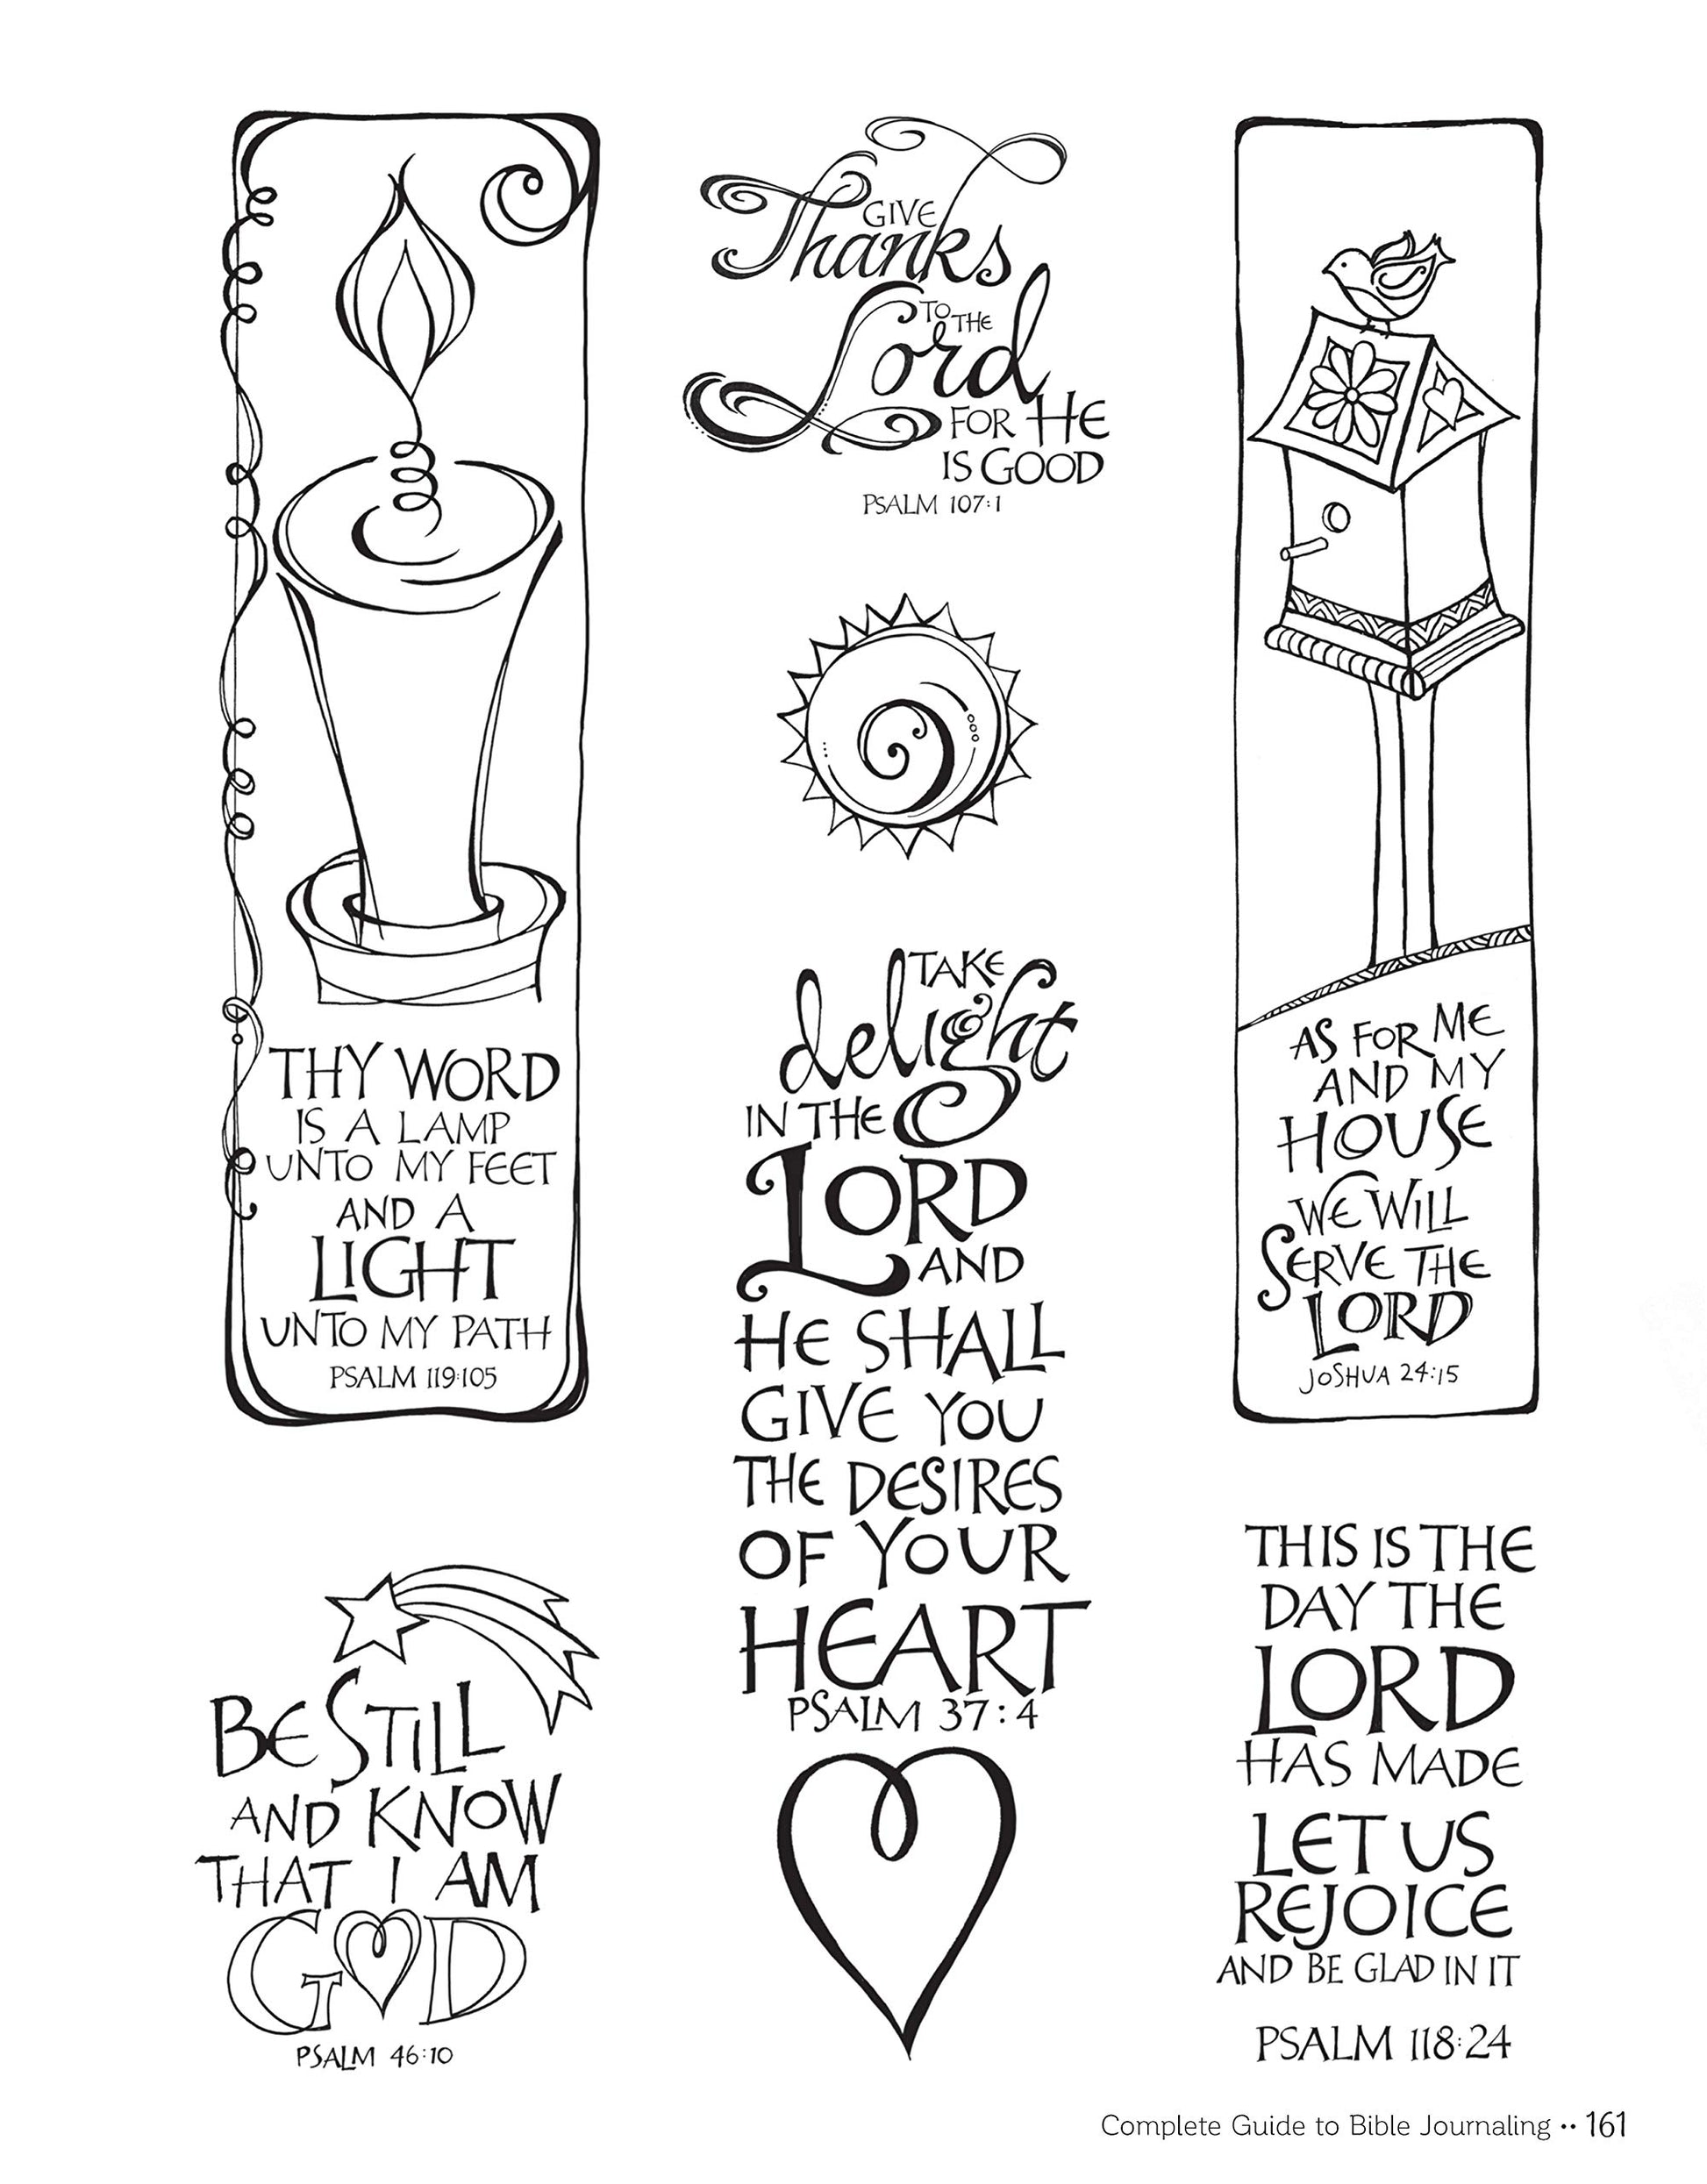 THY WORD
IS A LAMP
UNTO MY FEET
AND A
LIGHT
UNTO MY PATH
PSALM 119:105
BE STILL
AND KNOW
THAT I AM
GOD
PSALM 46:10
GIVE
Thanks
TO THE
Lord
FOR HE
IS GOOD
PSALM 107:1
TAKE
delight
IN THE
LORD
AND
HE SHALL
GIVE YOU
THE DESIRES
OF YOUR
HEART
PSALM 37:4
AS FOR ME
AND MY
HOUSE
WE WILL
SERVE THE
LORD
JOSHUA 24:15
THIS IS THE
DAY THE
LORD
HAS MADE
LET US
REJOICE
AND BE GLAD IN IT
PSALM 118:24
Complete Guide to Bible Journaling •• 161